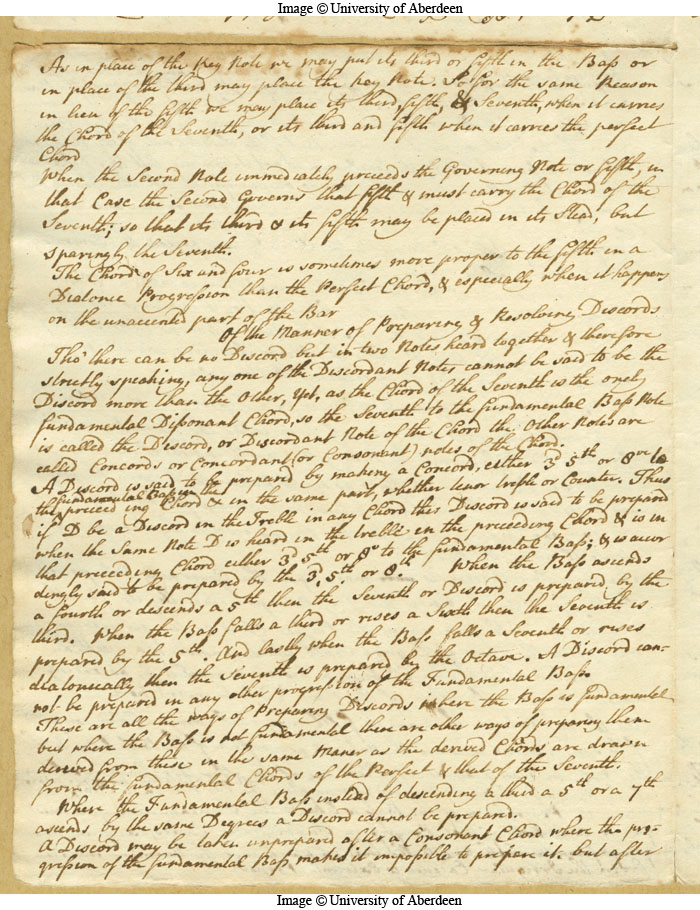 Image © University of Aberdeen
As in place of the Key Note we may put its third or fifth in the Baſs or
in place of the third may place the Key Note. So for the same Reason
in lieu of the fifth we may place its third, fifth, & Seventh, when it carries
the Chord of the Seventh, or its third and fifth when it carries the perfect
Chord
When the Second Note immediately preceeds the Governing Note or fifth, in
that Case the Second Governs that fifth & must carry the Chord of the
Seventh; so that its third & its fifth may be placed in its Stead, but
sparingly the Seventh.
The Chord of Six and four is sometimes more proper to the fifth in a
Diatonic Progreſsion than the Perfect Chord, & especially when it happens
on the unaccented part of the Bar
Of the Manner of Preparing & Resolving Discords
Tho' there can be no Discord but in two Notes heard together & therefore
strictly speaking, any one of the Discordant Notes cannot be said to be the
Discord more than the Other, Yet, as the Chord of the Seventh is the only
fundamental Diſsonant Chord, so the Seventh to the fundamental Baſs Note
is called the Discord, or Discordant Note of the Chord the Other Notes are
called Concords or Concordant (or Consonant) notes of the Chord.
A Discord is said to be prepared by making a Concord, either 3d 5th or 8ve to
the fundamental Baſs in the
preceeding Chord & in the same part, whether tenor treble or Counter. Thus
if D be a Discord in the Treble in any Chord this Discord is said to be prepared
when the Same Note D is heard in the treble in the preceeding Chord & is in
that preceeding Chord either 3d, 5th or 8ve to the fundamental Baſs; & is accor
dingly said to be prepared by the 3d, 5th or 8th. When the Baſs ascends
a fourth or descends a 5th then the Seventh or Discord is prepared by the
third. When the Baſs falls a third or rises a Sixth then the Seventh is
prepared by the 5th. And lastly when the Baſs falls a Seventh or rises
diatonically then the Seventh is prepared by the Octave. A Discord can-
not be prepared in any other progreſsion of the Fundamental Baſs.
These are all the ways of Preparing Discords where the Baſs is fundamental
but where the Baſs is not fundamental there are other ways of preparing them
derived from these in the same Maner as the derived Chords are drawn
from the fundamental Chords of the Perfect & that of the Seventh.
Where the Fundamental Baſs instead of descending a third a 5th or a 7th
ascends by the same Degrees a Discord cannot be prepared.
A Discord may be taken unprepared after a Consonant Chord where the pro-
greſsion of the fundamental Baſs makes it impoſsible to prepare it. but after
Image © University of Aberdeen